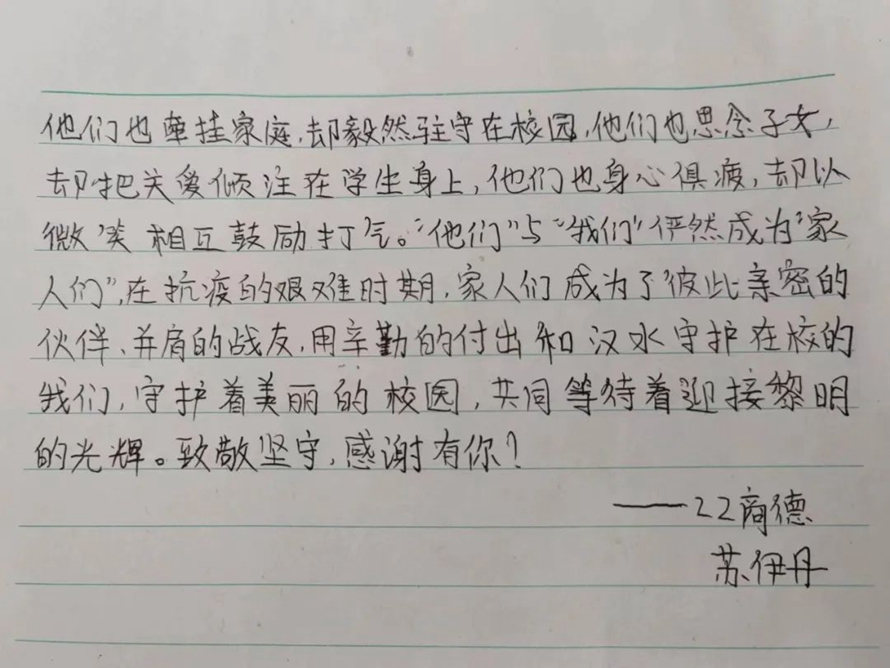 他们也牵挂家庭,却毅然驻守在校园,他们也思念子女,
却把关爱倾注在学生身上,他们也身心俱疲,却以
微笑相互鼓励打气。“他们”与“我们”俨然成为“家
人们”,在抗疫的艰难时期,家人们成为了彼此亲密的
伙伴、并肩的战友,用辛勤的付出和汉水守护在校的
我们,守护着美丽的校园,共同等待着迎接黎明
的光辉。致敬坚守,感谢有你?
——22商德
苏伊丹